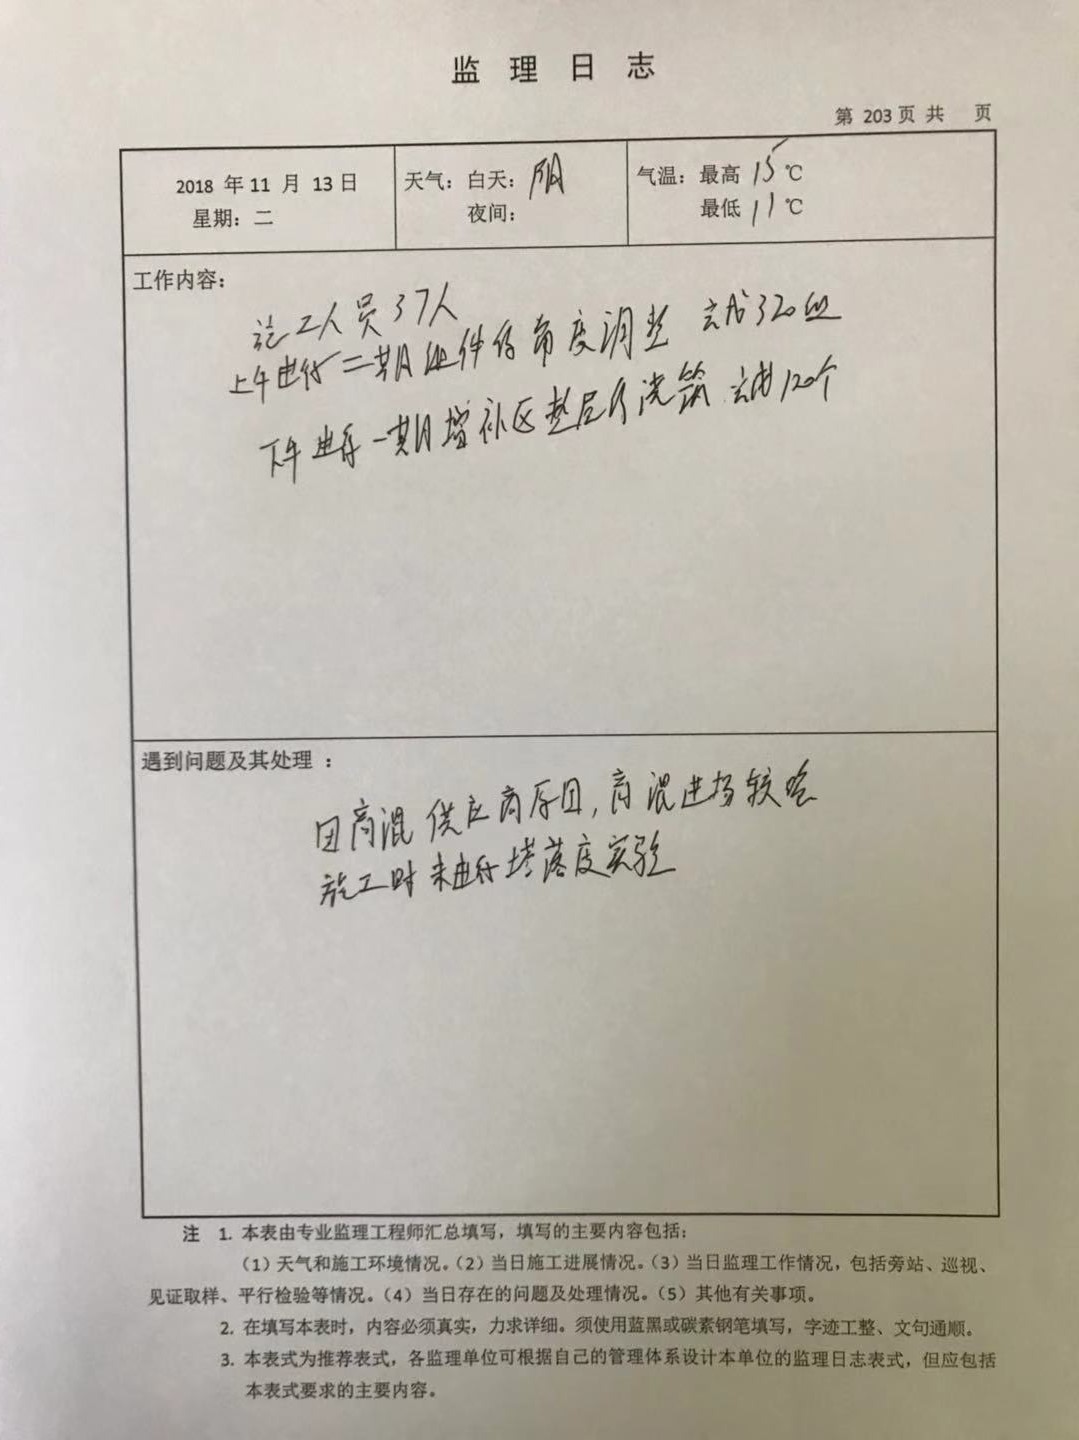 监理日志
第 203 页 共 页
2018 年 11 月 13 日
星期：二
天气：白天：阴
夜间：
气温：最高 15 ℃
最低 11 ℃
工作内容：
施工人员37人
上午进行二期组件仔角度调整 完成320组
下午进行一期增补区垫层浇筑 完成120个
遇到问题及其处理 ：
因商混供应商原因，商混进场较晚
施工时未进行塔落度实验
注 1. 本表由专业监理工程师汇总填写，填写的主要内容包括：
（1）天气和施工环境情况。（2）当日施工进展情况。（3）当日监理工作情况，包括旁站、巡视、
见证取样、平行检验等情况。（4）当日存在的问题及处理情况。（5）其他有关事项。
2. 在填写本表时，内容必须真实，力求详细。须使用蓝黑或碳素钢笔填写，字迹工整、文句通顺。
3. 本表式为推荐表式，各监理单位可根据自己的管理体系设计本单位的监理日志表式，但应包括
本表式要求的主要内容。